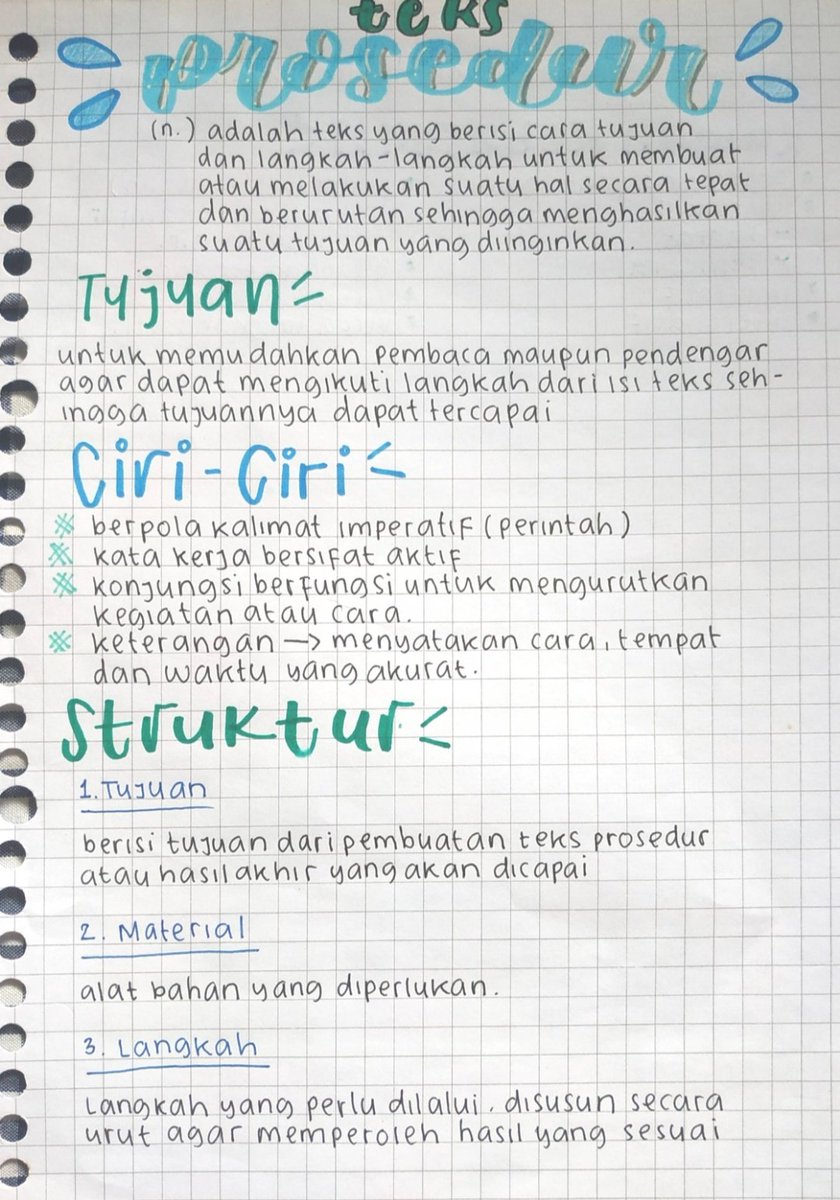 teks
prosedur
(n.) adalah teks yang berisi cara tujuan
dan langkah-langkah untuk membuat
atau melakukan suatu hal secara tepat
dan berurutan sehingga menghasilkan
suatu tujuan yang diinginkan.
Tujuan
untuk memudahkan pembaca maupun pendengar
agar dapat mengikuti langkah dari isi teks seh-
ingga tujuannya dapat tercapai
Ciri-Ciri
berpola kalimat imperatif (perintah)
kata kerja bersifat aktif
konjungsi berfungsi untuk mengurutkan
kegiatan atau cara.
keterangan → menyatakan cara, tempat
dan waktu yang akurat.
Struktur
1. Tujuan
berisi tujuan dari pembuatan teks prosedur
atau hasil akhir yang akan dicapai
2. Material
alat bahan yang diperlukan.
3. Langkah
Langkah yang perlu dilalui. disusun secara
urut agar memperoleh hasil yang sesuai